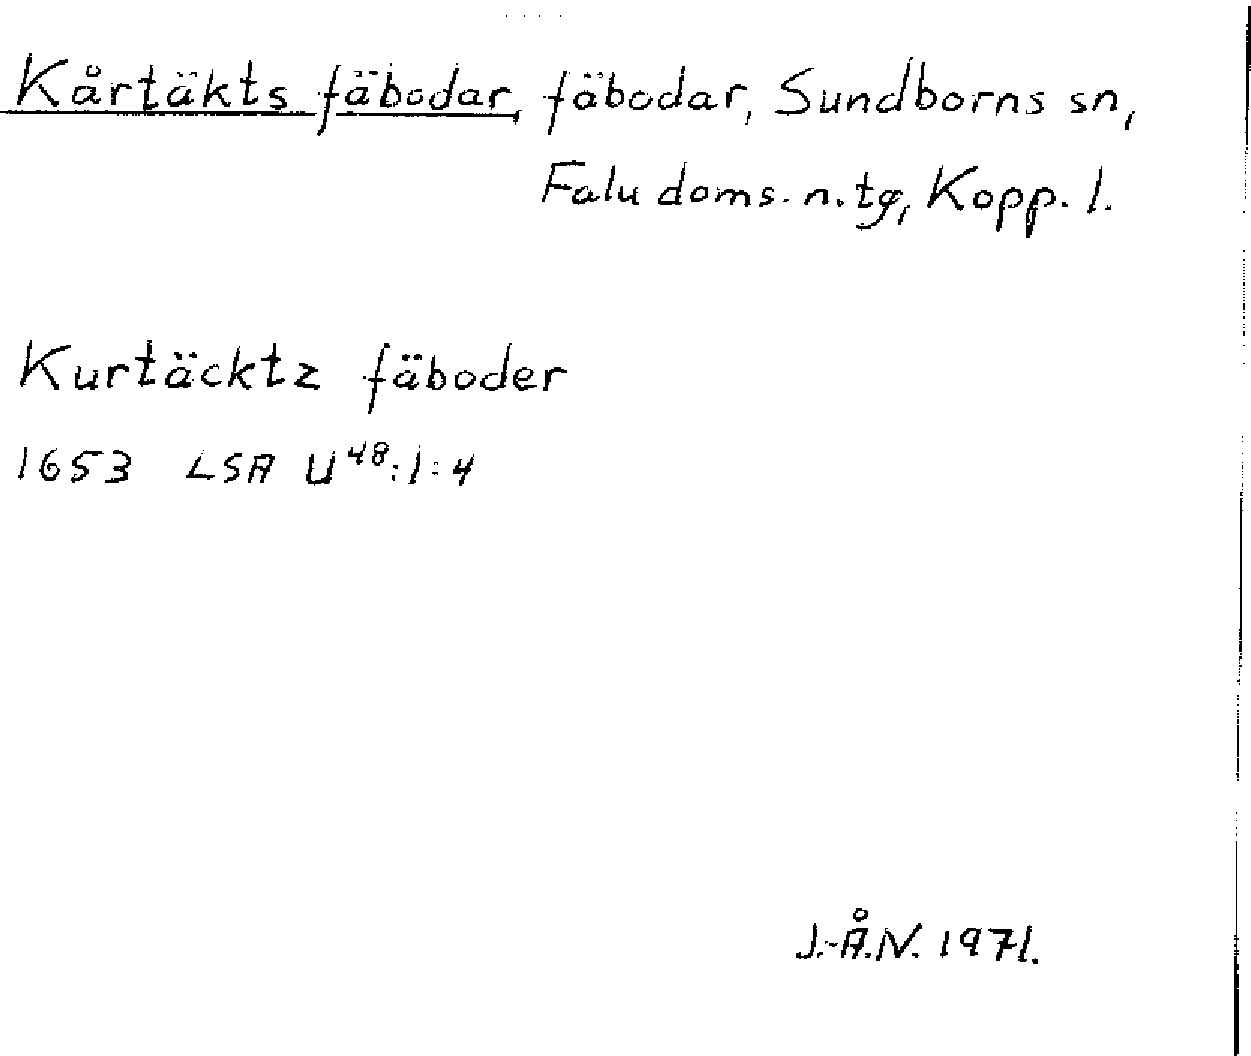 Kårtäkts fäbodar, fäbodar, Sundborns sn,
Falu doms. n. tg, Kopp. l.
Kurtäcktz fäboder
1653 LSA U⁴⁸:1:4
J.-Å.N. 1971.